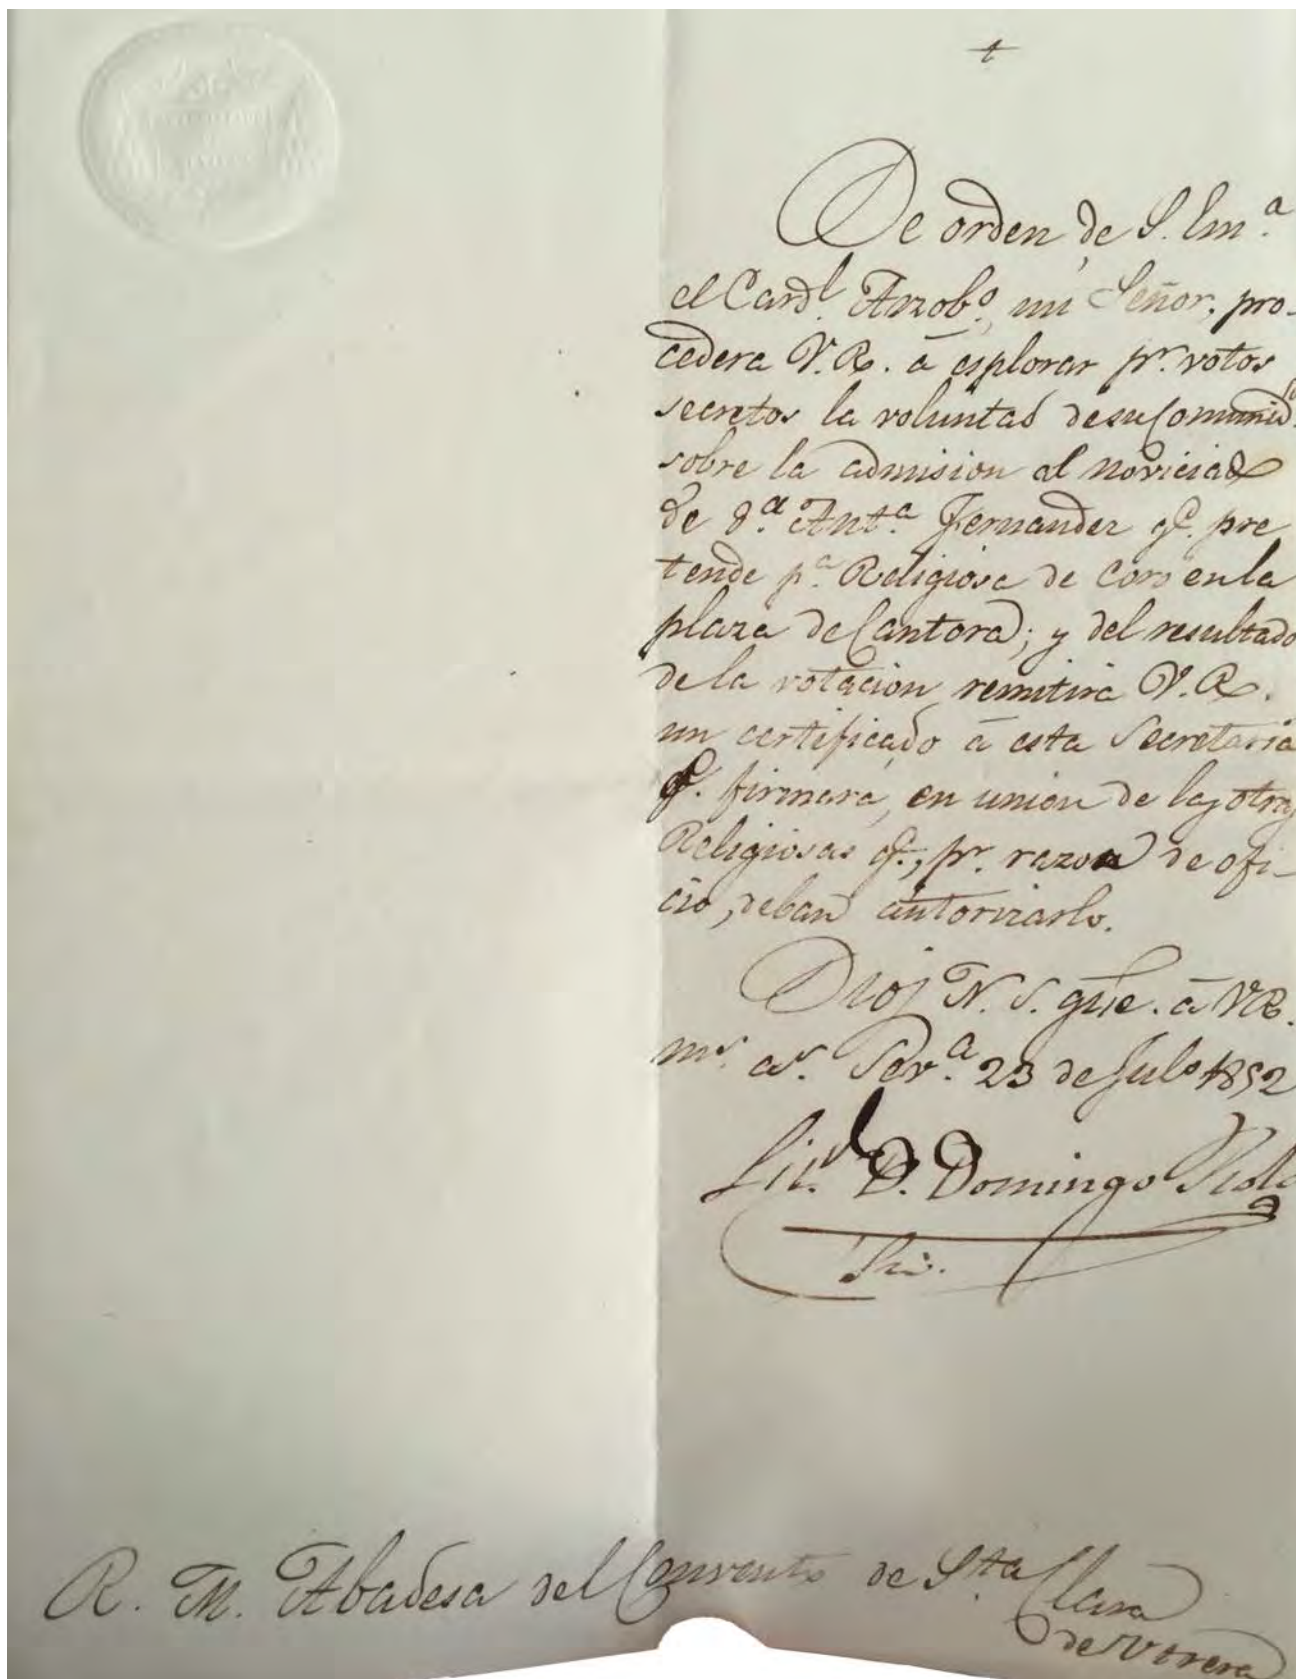 †
De orden de S. Em.ª
el Card.l Arzob.o, mi Señor, pro-
cedera V.R. á esplorar pr. votos
secretos la voluntad de su Comunid.
sobre la admision al noviciado
de D.ª Ant.ª Fernandez q.e pre
tende p.ª Religiosa de coro en la
plaza de Cantora; y del resultado
de la votacion remitirá V.R.
un certificado á esta Secretaría
q.e firmará, en union de las otras
Religiosas q.e, pr. razon de ofi-
cio, deban autorizarlo.
Dios N. S. gũe. á V.R.
m.s a.s Sev.ª 23 de Jul.o 1852
Lic.do D. Domingo
Srio.
R. M. Abadesa del Convento de S.ta Clara
de Utrera